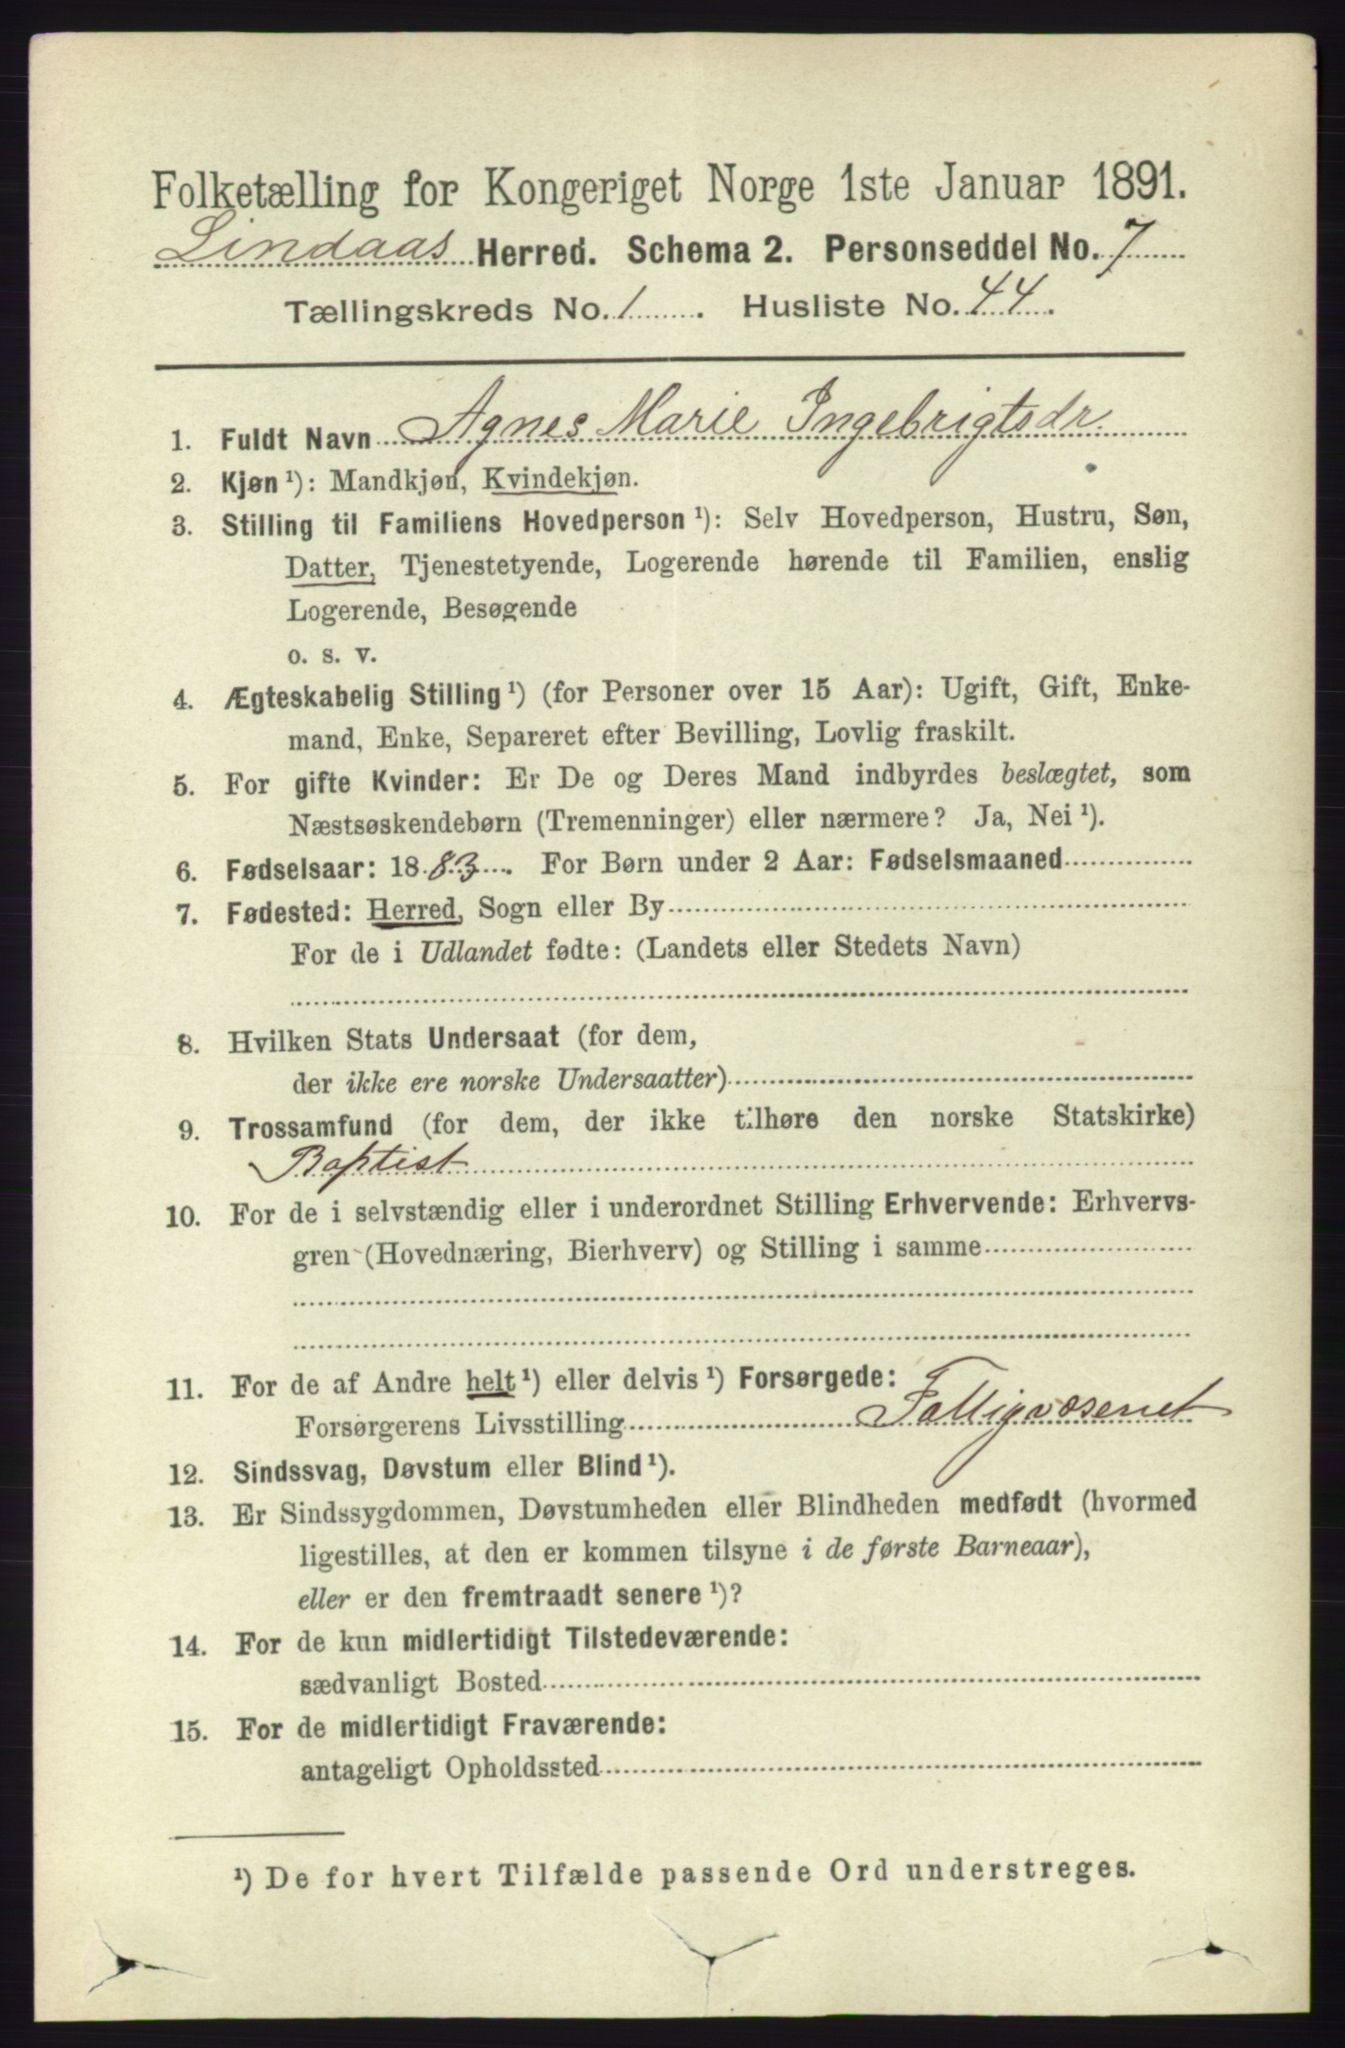 Folketælling for Kongeriget Norge 1ste Januar 1891.
Lindaas Herred. Schema 2. Personseddel No. 7
Tællingskreds No. 1 . Husliste No. 44.
1. Fuldt Navn Agnes Marie Ingebrigtsdr.
2. Kjøn ¹): Mandkjøn, Kvindekjøn.
3. Stilling til Familiens Hovedperson ¹): Selv Hovedperson, Hustru, Søn,
Datter, Tjenestetyende, Logerende hørende til Familien, enslig
Logerende, Besøgende
o. s. v.
4. Ægteskabelig Stilling ¹) (for Personer over 15 Aar): Ugift, Gift, Enke-
mand, Enke, Separeret efter Bevilling, Lovlig fraskilt.
5. For gifte Kvinder: Er De og Deres Mand indbyrdes beslægtet, som
Næstsøskendebørn (Tremenninger) eller nærmere? Ja, Nei ¹).
6. Fødselsaar: 1883. For Børn under 2 Aar: Fødselsmaaned
7. Fødested: Herred, Sogn eller By
For de i Udlandet fødte: (Landets eller Stedets Navn)
8. Hvilken Stats Undersaat (for dem,
der ikke ere norske Undersaatter)
9. Trossamfund (for dem, der ikke tilhøre den norske Statskirke)
Baptist
10. For de i selvstændig eller i underordnet Stilling Erhvervende: Erhvervs-
gren (Hovednæring, Bierhverv) og Stilling i samme
11. For de af Andre helt ¹) eller delvis ¹) Forsørgede:
Forsørgerens Livsstilling Fattigvæsenet
12. Sindssvag, Døvstum eller Blind ¹).
13. Er Sindssygdommen, Døvstumheden eller Blindheden medfødt (hvormed
ligestilles, at den er kommen tilsyne i de første Barneaar),
eller er den fremtraadt senere ¹)?
14. For de kun midlertidigt Tilstedeværende:
sædvanligt Bosted
15. For de midlertidigt Fraværende:
antageligt Opholdssted
¹) De for hvert Tilfælde passende Ord understreges.